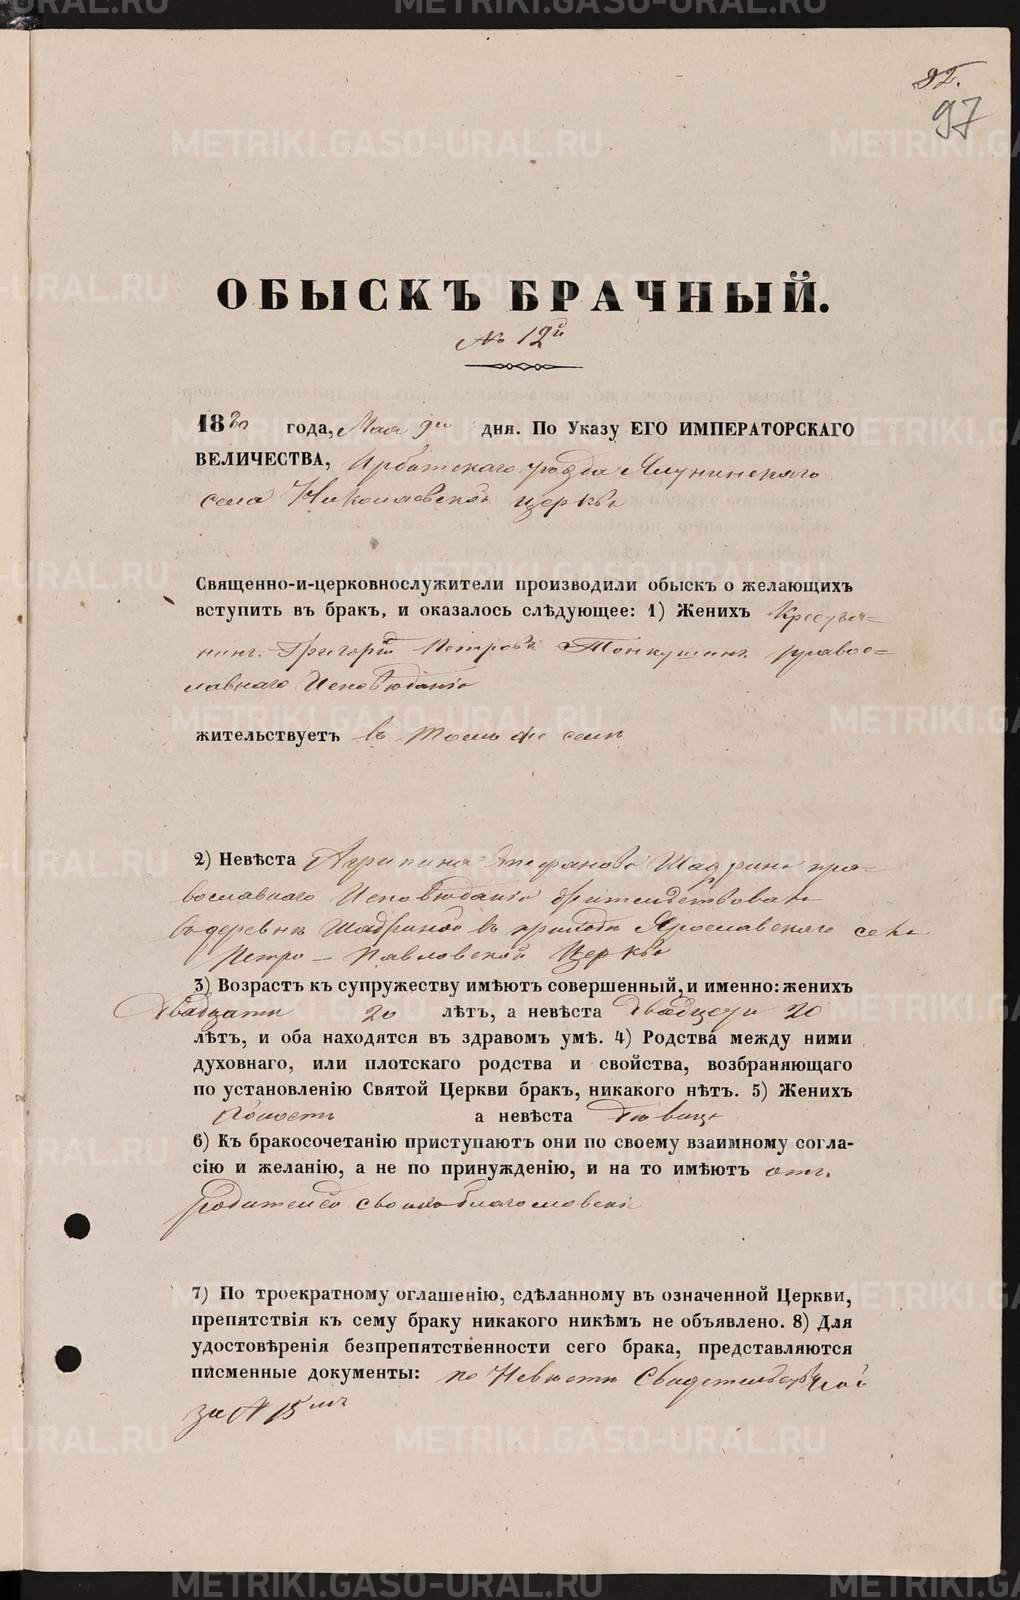 92.
97
ОБЫСКЪ БРАЧНЫЙ.
№ 12й
18 года, Мая 9го дня. По Указу ЕГО ИМПЕРАТОРСКАГО
ВЕЛИЧЕСТВА, Ирбитскаго уѣзда Ялунинскаго
села Николаевской церкви
Священно-и-церковнослужители производили обыскъ о желающихъ
вступить въ бракъ, и оказалось слѣдующее: 1) Женихъ Крестья=
нинъ Григорій Петровъ Тонкушинъ правос=
лавнаго Исповѣданія
жительствуетъ въ томъ же селѣ
2) Невѣста Агрипина Стефанова Шадрина пра=
вославнаго Исповѣданія жительствовала
въ деревнѣ Шадриной въ приходѣ Ярославскаго села
Петро-Павловской Церкви
3) Возрастъ къ супружеству имѣютъ совершенный, и именно: женихъ
Двадцати 20 лѣтъ, а невѣста Двадцати 20
лѣтъ, и оба находятся въ здравомъ умѣ. 4) Родства между ними
духовнаго, или плотскаго родства и свойства, возбраняющаго
по установленію Святой Церкви бракъ, никакого нѣтъ. 5) Женихъ
Холостъ а невѣста Дѣвица
6) Къ бракосочетанію приступаютъ они по своему взаимному согла-
сію и желанію, а не по принужденію, и на то имѣютъ отъ
родителей своихъ благословеніе
7) По троекратному оглашенію, сдѣланному въ означенной Церкви,
препятствія къ сему браку никакого никѣмъ не объявлено. 8) Для
удостовѣренія безпрепятственности сего брака, представляются
писменные документы: по Невѣстѣ
за № 15мъ
METRIKI.GASO-URAL.RU